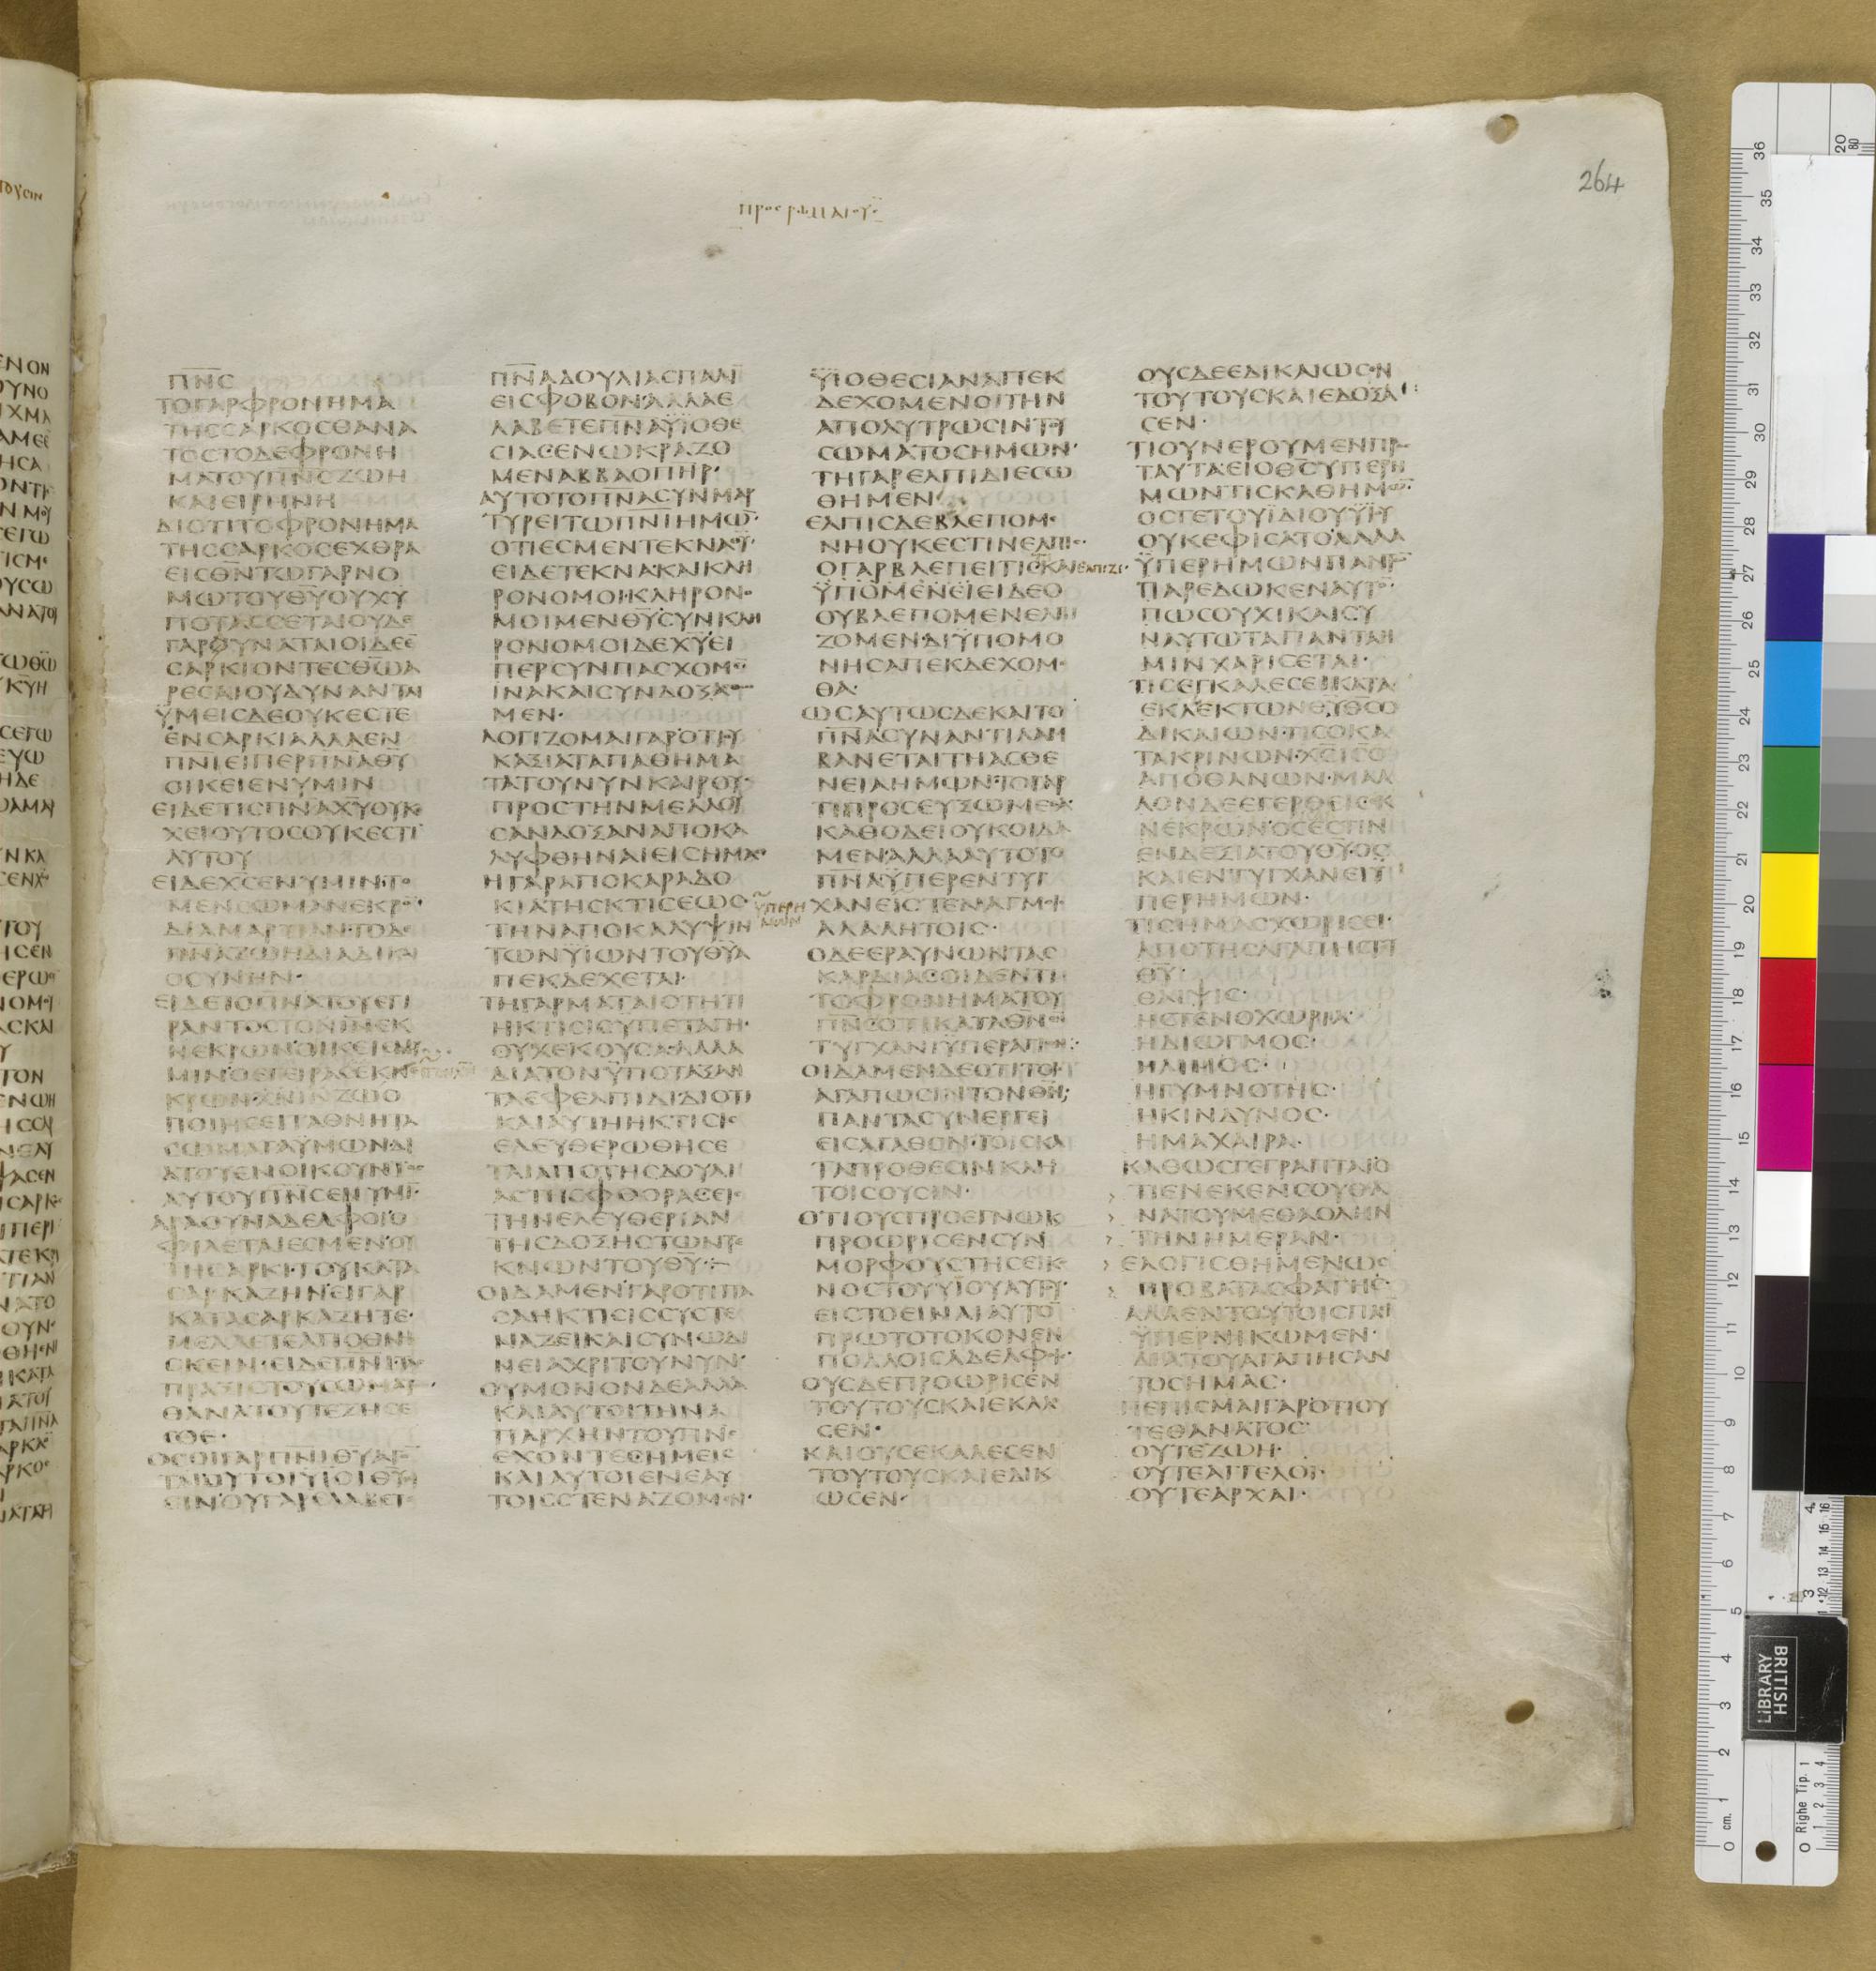 264
ΠΝϹ
ΤΟΓΑΡΦΡΟΝΗΜΑ
ΤΗϹϹΑΡΚΟϹΘΑΝΑ
ΤΟϹΤΟΔΕΦΡΟΝΗ
ΜΑΤΟΥΠΝϹΖΩΗ
ΚΑΙΕΙΡΗΝΗ
ΔΙΟΤΙΤΟΦΡΟΝΗΜΑ
ΤΗϹϹΑΡΚΟϹΕΧΘΡΑ
ΕΙϹΘΝΤΩΓΑΡΝΟ
ΜΩΤΟΥΘΥΟΥΧΥ
ΠΟΤΑϹϹΕΤΑΙΟΥΔΕ
ΓΑΡΔΥΝΑΤΑΙΟΙΔΕΕ
ϹΑΡΚΙΟΝΤΕϹΘΩΑ
ΡΕϹΑΙΟΥΔΥΝΑΝΤΑΙ
ΫΜΕΙϹΔΕΟΥΚΕϹΤΕ
ΕΝϹΑΡΚΙΑΛΛΑΕΝ
ΠΝΙΕΙΠΕΡΠΝΑΘΥ
ΟΙΚΕΙΕΝΥΜΙΝ
ΕΙΔΕΤΙϹΠΝΑΧΥΟΥΚΕ
ΧΕΙΟΥΤΟϹΟΥΚΕϹΤΙ
ΑΥΤΟΥ
ΕΙΔΕΧϹΕΝΥΜΙΝ·ΤΟ
ΜΕΝϹΩΜΑΝΕΚΡΟ
ΔΙΑΜΑΡΤΙΑΝ·ΤΟΔΕ
ΠΝΑΖΩΗΔΙΑΔΙΚΑΙ
ΟϹΥΝΗΝ·
ΕΙΔΕΤΟΠΝΑΤΟΥΕΓΙ
ΡΑΝΤΟϹΤΟΝΙΝΕΚ
ΝΕΚΡΩΝΟΙΚΕΙΕΝΥ
ΜΙΝΟΕΓΕΙΡΑϹΕΚΝΕ
ΚΡΩΝΧΝΙΝΖΩΟ
ΠΟΙΗϹΕΙΤΑΘΝΗΤΑ
ϹΩΜΑΤΑΫΜΩΝΔΙ
ΑΤΟΥΕΝΟΙΚΟΥΝΤΟϹ
ΑΥΤΟΥΠΝϹΕΝΥΜΙ
ΑΡΑΟΥΝΑΔΕΛΦΟΙΟ
ΦΙΛΕΤΑΙΕϹΜΕΝΟΥ
ΤΗϹΑΡΚΙ·ΤΟΥΚΑΤΑ
ϹΑΡΚΑΖΗΝΕΙΓΑΡ
ΚΑΤΑϹΑΡΚΑΖΗΤΕ·
ΜΕΛΛΕΤΕΑΠΟΘΝΗ
ϹΚΕΙΝ·ΕΙΔΕΠΝΙΤΑϹ
ΠΡΑΞΙϹΤΟΥϹΩΜΑΤ
ΘΑΝΑΤΟΥΤΕΖΗϹΕ
ϹΘΕ·
ΟϹΟΙΓΑΡΠΝΙΘΥΑΓΟ
ΤΑΙΟΥΤΟΙΫΙΟΙΘΥ
ΕΙΝΟΥΓΑΡΕΛΑΒΕΤΕ
ΠΝΑΔΟΥΛΙΑϹΠΑΛΙ
ΕΙϹΦΟΒΟΝΑΛΛΑΕ
ΛΑΒΕΤΕΠΝΑΫΪΟΘΕ
ϹΙΑϹΕΝΩΚΡΑΖΟ
ΜΕΝΑΒΒΑΟΠΗΡ·
ΑΥΤΟΤΟΠΝΑϹΥΝΜΑΡ
ΤΥΡΕΙΤΩΠΝΙΗΜΩ·
ΟΤΙΕϹΜΕΝΤΕΚΝΑΘΥ
ΕΙΔΕΤΕΚΝΑ·ΚΑΙΚΛΗ
ΡΟΝΟΜΟΙ·ΚΛΗΡΟΝΟ
ΜΟΙΜΕΝΘΥϹΥΝΚΛΗ
ΡΟΝΟΜΟΙΔΕΧΥΕΙ
ΠΕΡϹΥΝΠΑϹΧΟΜΕ
ΙΝΑΚΑΙϹΥΝΔΟΞΑϹΘΩ
ΜΕΝ·
ΛΟΓΙΖΟΜΑΙΓΑΡΟΤΙΟΥ
ΚΑΞΙΑΤΑΠΑΘΗΜΑ
ΤΑΤΟΥΝΥΝΚΑΙΡΟΥ·
ΠΡΟϹΤΗΝΜΕΛΛΟΥ
ϹΑΝΔΟΞΑΝΑΠΟΚΑ
ΛΥΦΘΗΝΑΙΕΙϹΗΜΑϹ
ΗΓΑΡΑΠΟΚΑΡΑΔΟ
ΚΙΑΤΗϹΚΤΙϹΕΩϹ
ΤΗΝΑΠΟΚΑΛΥΨΙΝ
ΤΩΝΫΙΩΝΤΟΥΘΥΑ
ΠΕΚΔΕΧΕΤΑΙ·
ΤΗΓΑΡΜΑΤΑΙΟΤΗΤΙ
ΗΚΤΙϹΙϹΥΠΕΤΑΓΗ·
ΟΥΧΕΚΟΥϹΑ·ΑΛΛΑ
ΔΙΑΤΟΝΫΠΟΤΑΞΑΝ
ΤΑΕΦΕΛΠΙΔΙΔΙΟΤΙ
ΚΑΙΑΥΤΗΗΚΤΙϹΙϹ
ΕΛΕΥΘΕΡΩΘΗϹΕ
ΤΑΙΑΠΟΤΗϹΔΟΥΛΙ
ΑϹΤΗϹΦΘΟΡΑϹΕΙϹ
ΤΗΝΕΛΕΥΘΕΡΙΑΝ
ΤΗϹΔΟΞΗϹΤΩΝΤΕ
ΚΝΩΝΤΟΥΘΥ·
ΟΙΔΑΜΕΝΓΑΡΟΤΙΠΑ
ϹΑΗΚΤΙϹΙϹϹΥϹΤΕ
ΝΑΖΕΙΚΑΙϹΥΝΩΔΙ
ΝΕΙΑΧΡΙΤΟΥΝΥΝ·
ΟΥΜΟΝΟΝΔΕΑΛΛΑ
ΚΑΙΑΥΤΟΙΤΗΝΑ
ΠΑΡΧΗΝΤΟΥΠΝϹ
ΕΧΟΝΤΕϹΗΜΕΙϹ
ΚΑΙΑΥΤΟΙΕΝΕΑΥ
ΤΟΙϹϹΤΕΝΑΖΟΜΕΝ·
ΫΪΟΘΕϹΙΑΝΑΠΕΚ
ΔΕΧΟΜΕΝΟΙΤΗΝ
ΑΠΟΛΥΤΡΩϹΙΝΤΟΥ
ϹΩΜΑΤΟϹΗΜΩΝ·
ΤΗΓΑΡΕΛΠΙΔΙΕϹΩ
ΘΗΜΕΝ
ΕΛΠΙϹΔΕΒΛΕΠΟΜΕ
ΝΗΟΥΚΕϹΤΙΝΕΛΠΙϹ·
ΟΓΑΡΒΛΕΠΕΙΤΙϹΚΑΙΕΛΠΙΖΕΙ·
ΫΠΟΜΕΝΕΙΕΙΔΕΟ
ΟΥΒΛΕΠΟΜΕΝΕΛΠΙ
ΖΟΜΕΝΔΙΫΠΟΜΟ
ΝΗϹΑΠΕΚΔΕΧΟΜΕ
ΘΑ·
ΩϹΑΥΤΩϹΔΕΚΑΙΤΟ
ΠΝΑϹΥΝΑΝΤΙΛΑΜ
ΒΑΝΕΤΑΙΤΗΑϹΘΕ
ΝΕΙΑΗΜΩΝ·ΤΟΓΑΡ
ΤΙΠΡΟϹΕΥΞΩΜΕΘΑ
ΚΑΘΟΔΕΙΟΥΚΟΙΔΑ
ΜΕΝΑΛΛΑΑΥΤΟΤΟ
ΠΝΑΫΠΕΡΕΝΤΥΓ
ΧΑΝΕΙϹΤΕΝΑΓΜΟΙϹ
ΑΛΑΛΗΤΟΙϹ·
ΟΔΕΕΡΑΥΝΩΝΤΑϹ
ΚΑΡΔΙΑϹΟΙΔΕΝΤΙ
ΤΟΦΡΟΝΗΜΑΤΟΥ
ΠΝϹΟΤΙΚΑΤΑΘΝΕΝ
ΤΥΓΧΑΝΙΥΠΕΡΑΓΙΩΝ
ΟΙΔΑΜΕΝΔΕΟΤΙΤΟΙϹ
ΑΓΑΠΩϹΙΝΤΟΝΘΝ
ΠΑΝΤΑϹΥΝΕΡΓΕΙ
ΕΙϹΑΓΑΘΟΝ·ΤΟΙϹΚΑ
ΤΑΠΡΟΘΕϹΙΝΚΛΗ
ΤΟΙϹΟΥϹΙΝ·
ΟΤΙΟΥϹΠΡΟΕΓΝΩΚ
ΠΡΟΩΡΙϹΕΝϹΥΝ
ΜΟΡΦΟΥϹΤΗϹΕΙΚΟ
ΝΟϹΤΟΥΫΙΟΥΑΥΤΟΥ·
ΕΙϹΤΟΕΙΝΑΙΑΥΤΟ
ΠΡΩΤΟΤΟΚΟΝΕΝ
ΠΟΛΛΟΙϹΑΔΕΛΦΟΙϹ·
ΟΥϹΔΕΠΡΟΩΡΙϹΕΝ
ΤΟΥΤΟΥϹΚΑΙΕΚΑΛΕ
ϹΕΝ·
ΚΑΙΟΥϹΕΚΑΛΕϹΕΝ
ΤΟΥΤΟΥϹΚΑΙΕΔΙΚΑΙ
ΩϹΕΝ·
ΟΥϹΔΕΕΔΙΚΑΙΩϹΕΝ
ΤΟΥΤΟΥϹΚΑΙΕΔΟΞΑ
ϹΕΝ·
ΤΙΟΥΝΕΡΟΥΜΕΝΠΡΟϹ
ΤΑΥΤΑΕΙΟΘϹΥΠΕΡΗ
ΜΩΝΤΙϹΚΑΘΗΜΩ
ΟϹΓΕΤΟΥΪΔΙΟΥΫΪΟΥ
ΟΥΚΕΦΙϹΑΤΟΑΛΛΑ
ΫΠΕΡΗΜΩΝΠΑΝΤΩ
ΠΑΡΕΔΩΚΕΝΑΥΤΟ·
ΠΩϹΟΥΧΙΚΑΙϹΥ
ΝΑΥΤΩΤΑΠΑΝΤΑΗ
ΜΙΝΧΑΡΙϹΕΤΑΙ·
ΤΙϹΕΓΚΑΛΕϹΕΙΚΑΤΑ
ΕΚΛΕΚΤΩΝΘΥΘϹΟ
ΔΙΚΑΙΩΝ·ΤΙϹΟΚΑ
ΤΑΚΡΙΝΩΝ·ΧϹΙϹΟ
ΑΠΟΘΑΝΩΝ·ΜΑΛ
ΛΟΝΔΕΕΓΕΡΘΕΙϹΕΚ
ΝΕΚΡΩΝΟϹΕϹΤΙΝ
ΕΝΔΕΞΙΑΤΟΥΘΥ·ΟϹ
ΚΑΙΕΝΤΥΓΧΑΝΕΙΫ
ΠΕΡΗΜΩΝ·
ΤΙϹΗΜΑϹΧΩΡΙϹΕΙ·
ΑΠΟΤΗϹΑΓΑΠΗϹΤΟΥ
ΘΥ·
ΘΛΙΨΙϹ·
ΗϹΤΕΝΟΧΩΡΙΑ·
ΗΔΙΩΓΜΟϹ·
ΗΛΙΜΟϹ·
ΗΓΥΜΝΟΤΗϹ·
ΗΚΙΝΔΥΝΟϹ·
ΗΜΑΧΑΙΡΑ·
ΚΑΘΩϹΓΕΓΡΑΠΤΑΙΟ
ΤΙΕΝΕΚΕΝϹΟΥΘΑ
ΝΑΤΟΥΜΕΘΑΟΛΗΝ
ΤΗΝΗΜΕΡΑΝ·
ΕΛΟΓΙϹΘΗΜΕΝΩϹ
ΠΡΟΒΑΤΑϹΦΑΓΗϹ·
ΑΛΛΕΝΤΟΥΤΟΙϹΠΑϹΙ
ΫΠΕΡΝΙΚΩΜΕΝ·
ΔΙΑΤΟΥΑΓΑΠΗϹΑΝ
ΤΟϹΗΜΑϹ·
ΠΕΠΙϹΜΑΙΓΑΡΟΤΙΟΥ
ΤΕΘΑΝΑΤΟϹ
ΟΥΤΕΖΩΗ·
ΟΥΤΕΑΓΓΕΛΟΙ·
ΟΥΤΕΑΡΧΑΙ·
BRITISH
LIBRARY